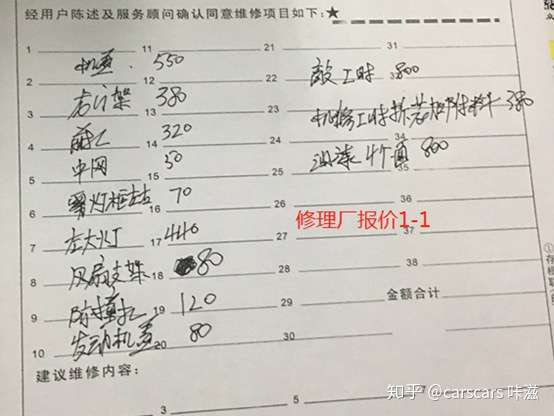 经用户陈述及服务顾问确认同意维修项目如下:★
1 11 21 31
机盖. 550
2 12 22 32
龙门架 380 敲工时 800
3 13 23 33
320 机修工时拆 380
4 14 24 34
中网 50 油漆4个面 800
5 15 25 35
雾灯框左右 70
6 16 26 36
修理厂报价1-1
左大灯 440
7 17 27 37
风扇支架 80
8 18 28 38
120
9 19 29 金额合计
发动机盖 80
10 20 30
建议维修内容:
1 3 5 7
知乎 @carscars 咔滋